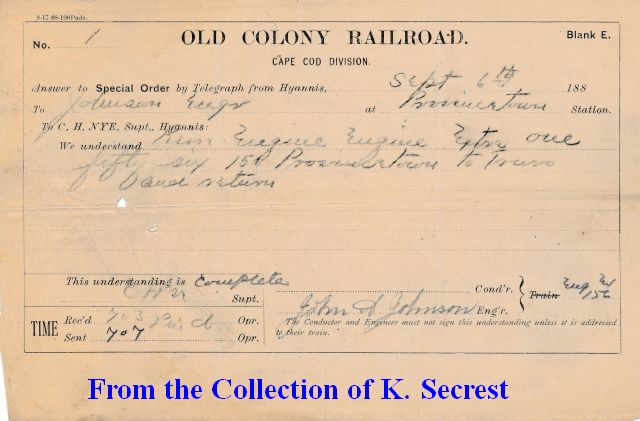 8-17-88-100Pads.
No. 1 OLD COLONY RAILROAD. Blank E.
CAPE COD DIVISION.
Answer to Special Order by Telegraph from Hyannis, Sept 6th 188
To Johnson Engr at Provincetown Station.
To C. H. NYE, Supt., Hyannis:
We understand Run Engine Engine Extra one
fifty six 156 Provincetown to Truro
and return
This understanding is Complete
C H N Supt. Cond'r. Train Eng Ex 156
John A Johnson Eng'r.
TIME Rec'd 703 Opr.
Sent 707 Opr.
The Conductor and Engineer must not sign this understanding unless it is addressed
to their train.
From the Collection of K. Secrest